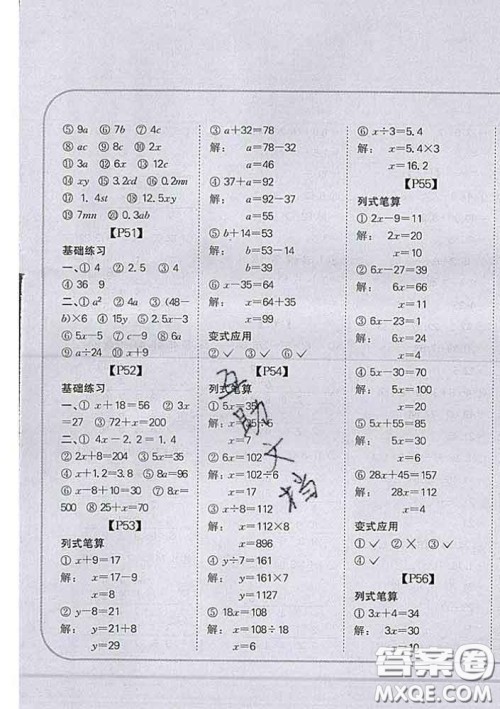 ⑤ 9a ⑥ 7b ⑦ 4c
⑧ ac ⑨ 8c ⑩ 2x
⑪ 3a ⑫ 15c ⑬ xy
⑭ xy ⑮ 3.2cd ⑯ 0.2mn
⑰ 1.4st ⑱ 12.5xy
⑲ 7mn ⑳ 0.3ab
【P51】
基础练习
一、① 4 ② 2.5 ③ 4
④ 36 9
二、① a² ② 4a ③ (48-
b)×6 ④ 15y ⑤ 2.5x-3
⑥ 5x-5 ⑦ c-9 ⑧ 6a
⑨ a÷24 ⑩ x+9
【P52】
基础练习
一、① x+18=56 ② 3x
=27 ③ 72+x=200
二、① 4x-2.2=1.4
② 2x+8=204 ③ 5x=35
④ x+1.2=3.8 ⑤ 8a=96
⑥ x-8+10=30 ⑦ 8x=
500 ⑧ 25+x=70
【P53】
列式笔算
① x+9=17
解: x=17-9
x=8
② y-8=21
解: y=21+8
y=29
③ a+32=78
解: a=78-32
a=46
④ 37+a=92
解: a=92-37
a=55
⑤ b+14=53
解: b=53-14
b=39
⑥ x-35=64
解: x=64+35
x=99
变式应用
② ✓ ③ ✓ ⑥ ✓
【P54】
列式笔算
① 5x=35
解: x=35÷5
x=7
② 6x=102
解: x=102÷6
x=17
③ x÷8=112
解: x=112×8
x=896
④ y÷7=161
解: y=161×7
y=1127
⑤ 18x=108
解: x=108÷18
x=6
⑥ x÷3=5.4
解: x=5.4×3
x=16.2
【P55】
列式笔算
① 2x-9=11
解: 2x=20
x=10
② 6x-27=39
解: 6x=66
x=11
③ 6x-23=1
解: 6x=24
x=4
④ 5x-30=70
解: 5x=100
x=20
⑤ 5x+55=85
解: 5x=30
x=6
⑥ 28x+45=157
解: 28x=112
x=4
变式应用
① ✓ ② × ③ ✓
④ ✓
【P56】
列式笔算
① 3x+4=34
解: 3x=30
x=10
互助文档
答案卷
MXQE.COM